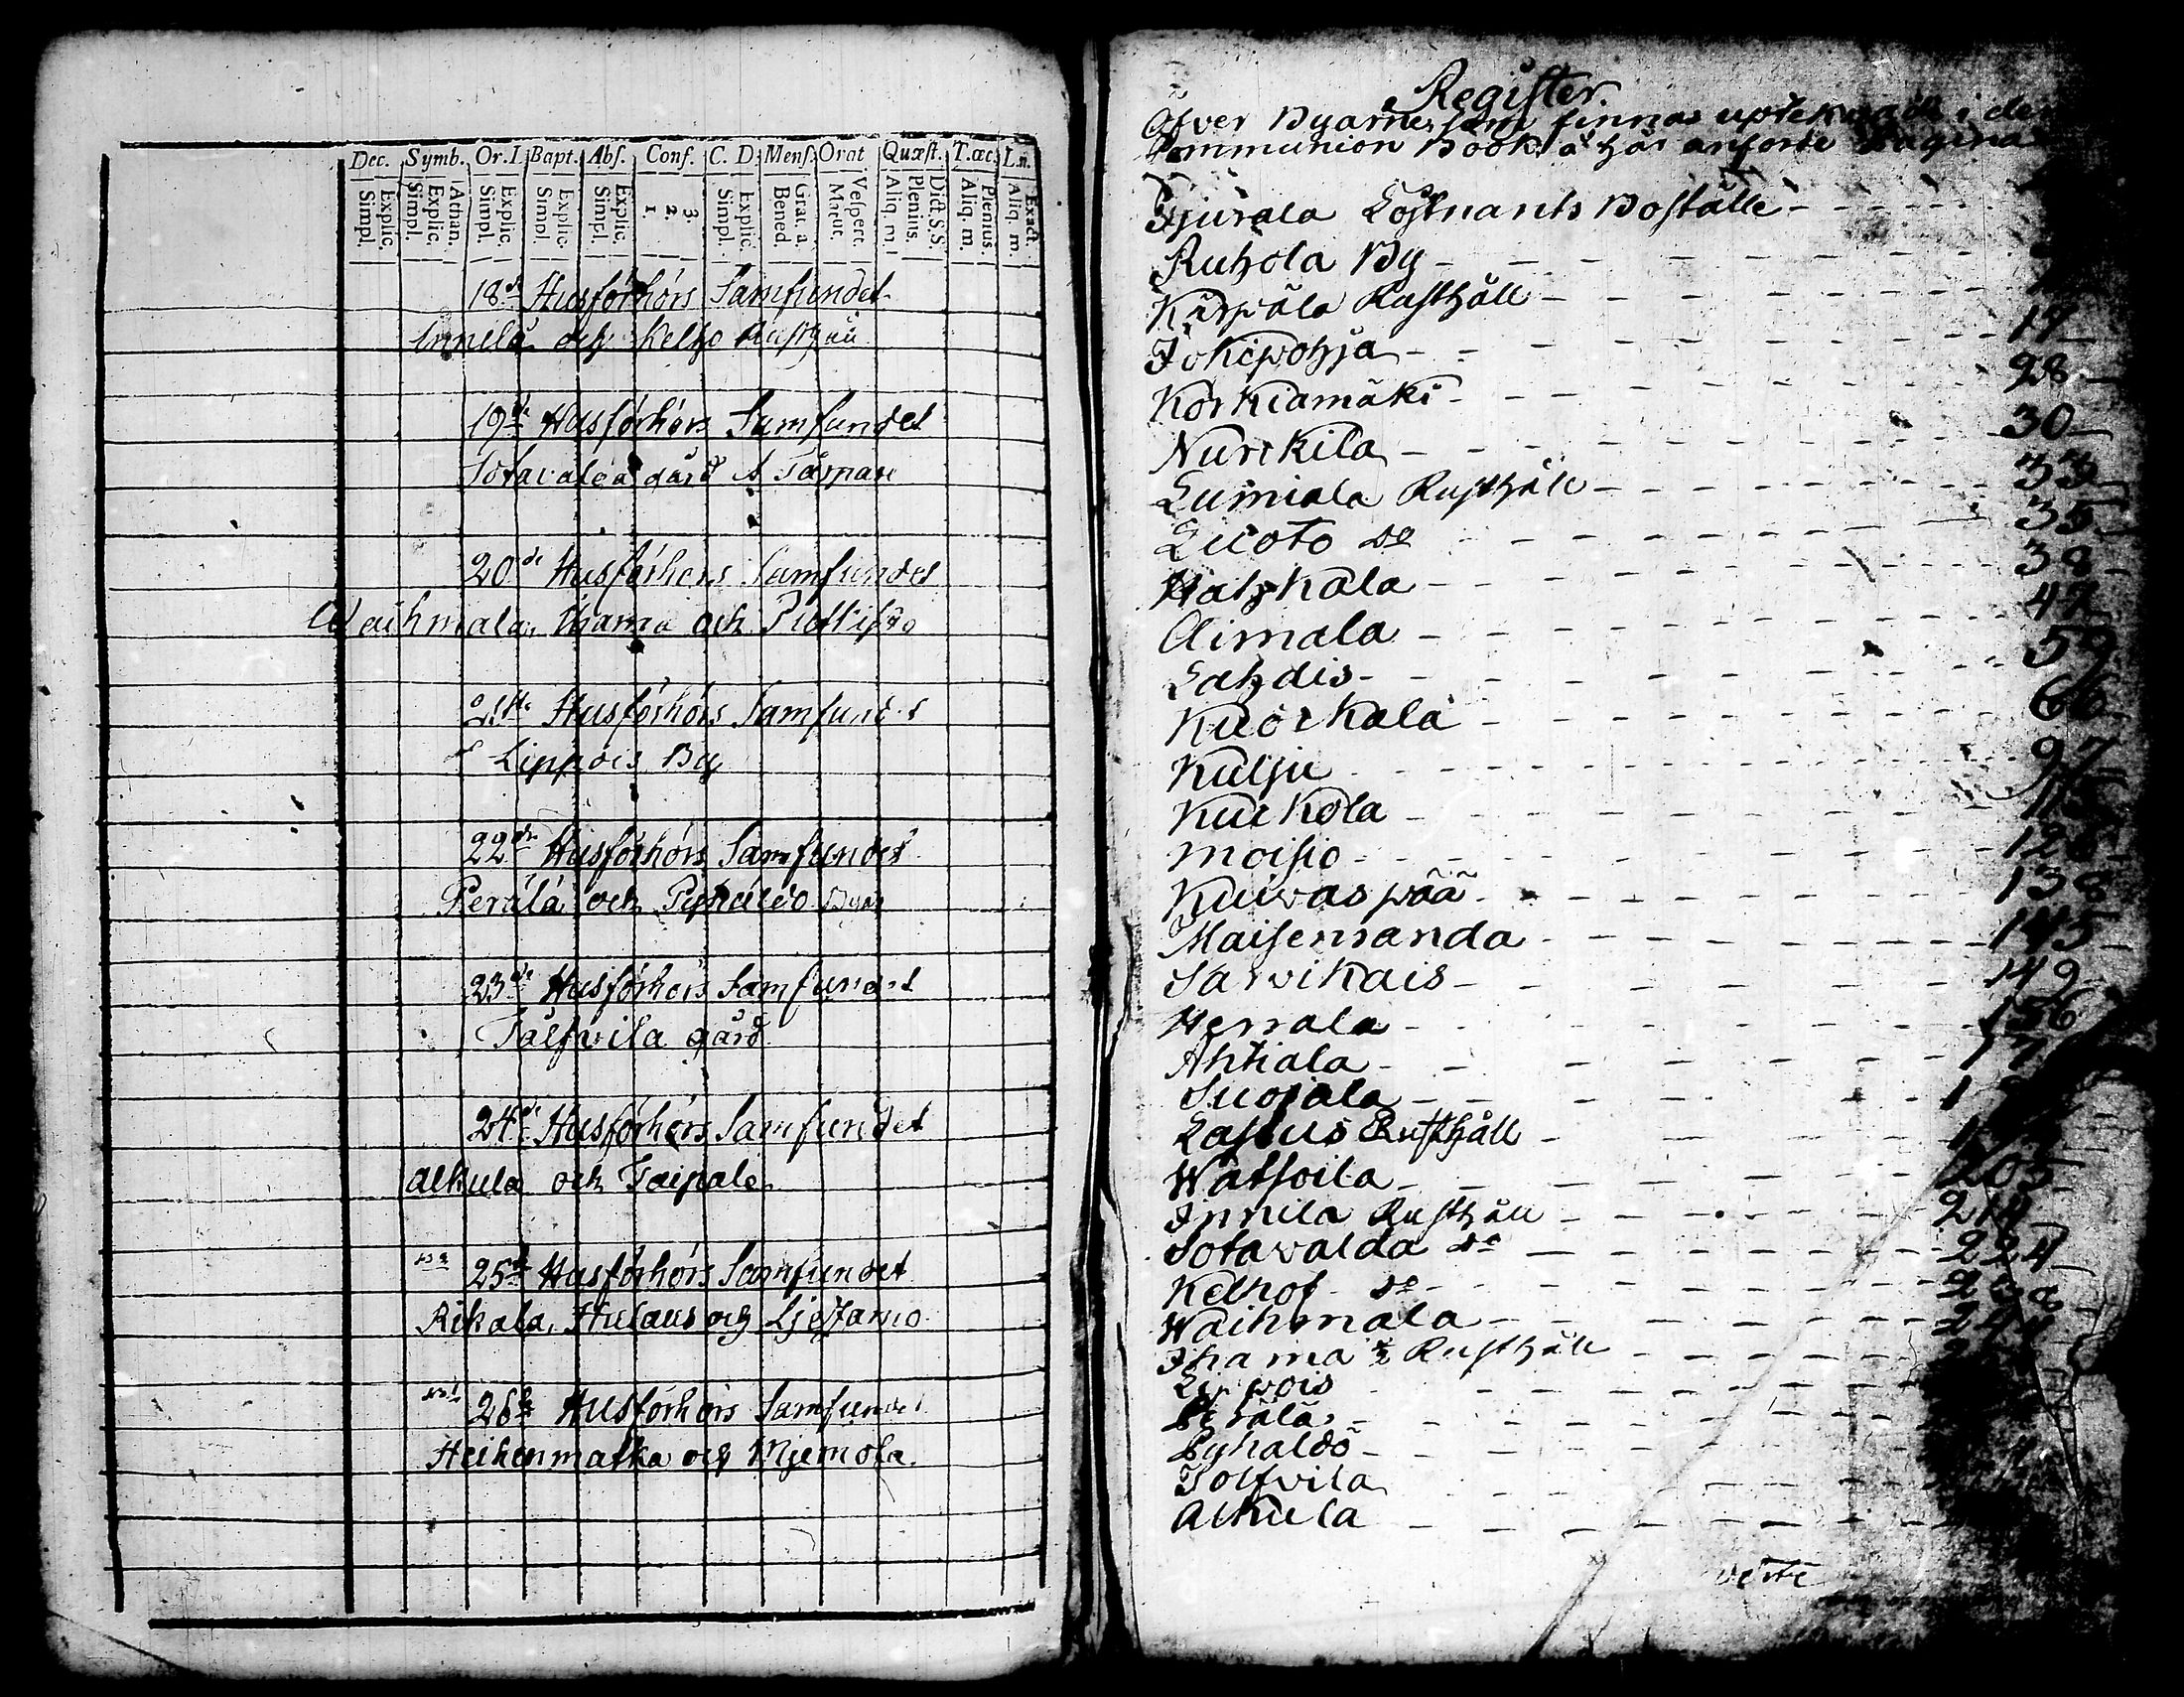 Dec. Symb. Or. I. Bapt. Abſ. Conf. C. D. Menſ. Orat Quæſt. T. œc. L. n.
Explic. Simpl. Athan. Explic. Simpl. Explic. Simpl. Explic. Simpl Explic. Simpl. 3. 2. 1. Explic. Simpl. Grat. a. Bened Veſpert. Matut. Dict. S. S. Plenius. Aliq. m. Plenius. Aliq. m. Exact. Aliq. m.
18de Husförhörs Samfundet
Innila och Kelho
19de Husförhörs Samfundet
gård
20de Husförhörs Samfundet
Waihmala, Ihama och
21ste Husförhörs Samfundet
Lippois By
22de Husförhörs Samfundet
Perälä och Pyhäldö Byar
23de Husförhörs Samfundet
Tålfvila gård
24de Husförhörs Samfundet
Alkula och Taipale
25te Husförhörs Samfundet
Rikala, Hulaus och
26te Husförhörs Samfundet
Heikenmatka och
Register.
Öfver Byarne, som finnas uptecknade i den
Communion Book, å här anförde Pagina
Löjtnants Boställe
Ruhola By
Kirpälä Rusthåll
Jokipohja 17
Korkiamäki 28
Nurkkila 30
Lumiala Rusthåll 33
Luoto do 35
Hahkala 38
Aimala 42
Lahdis 59
Kuorkala 66
Kulju 97
Kurkola 113
Moisio 128
Kuivaspää 138
Maisenranda 145
Sarvikais 149
Herrala 156
Ahtiala
Suojala
Laskus Rusthåll
Wätsoila 205
Innila Rusthåll 214
Sotavalda do 224
Kelhof do
Waihmala 244
Ihama ½ Rusthåll
Lippois
Perälä
Pyhaldö
Tolfvila
Alkula
verte